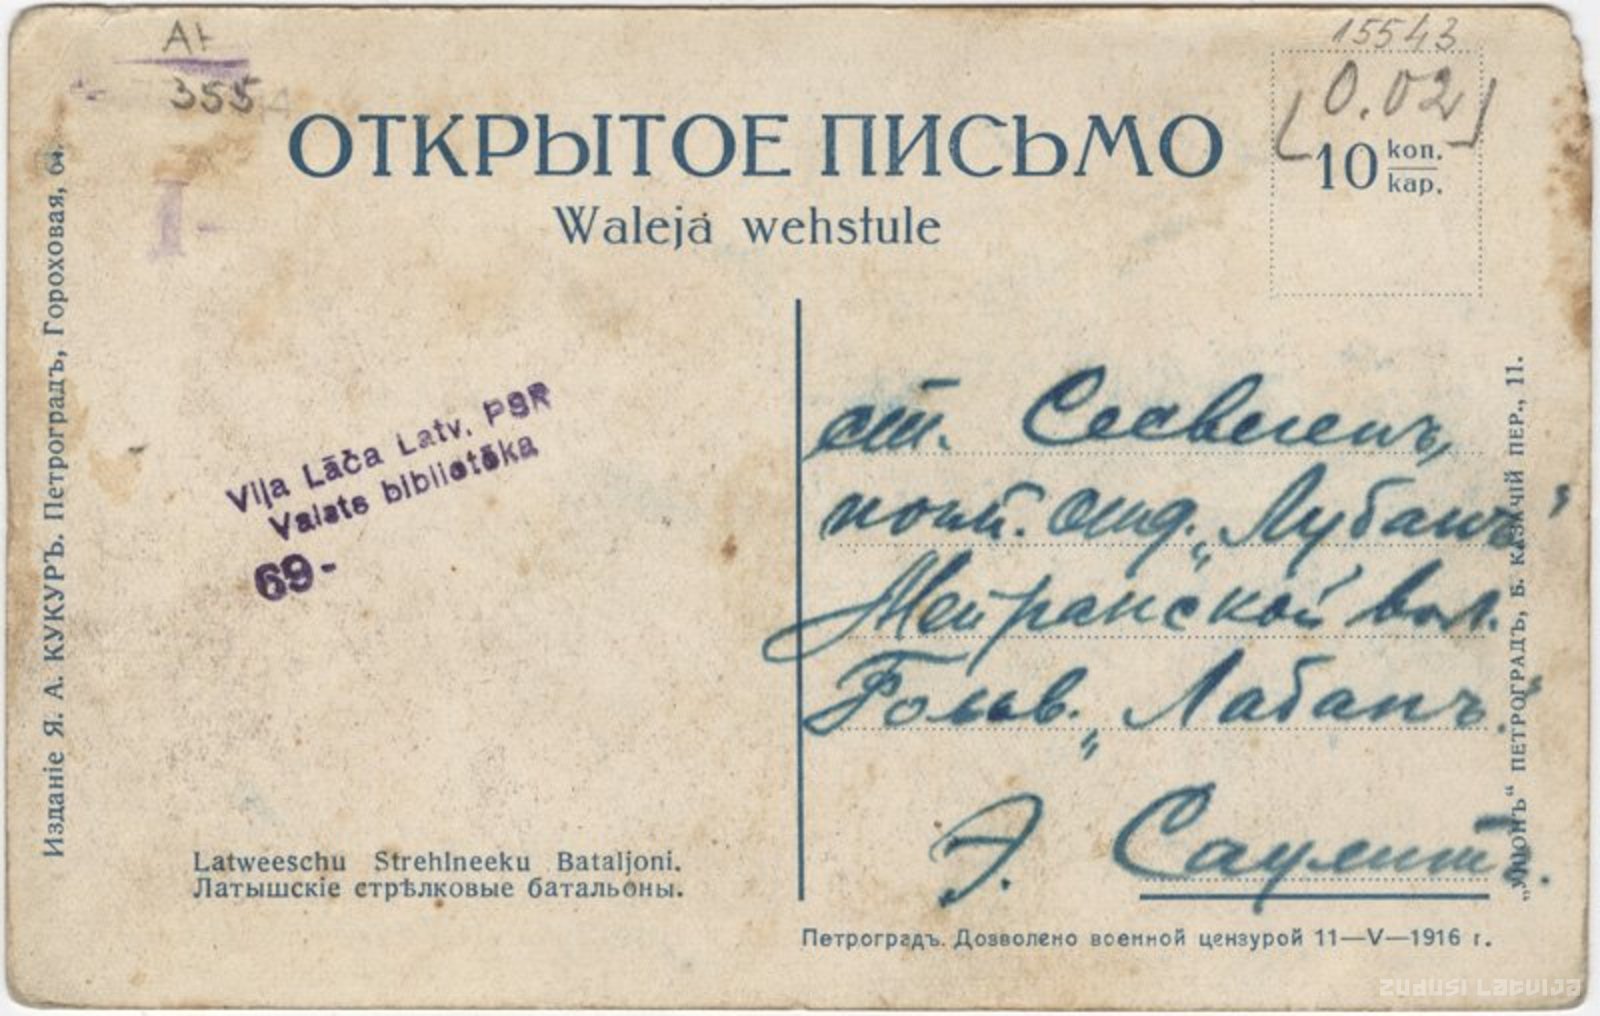 Аг
355
15543
0.02
ОТКРЫТОЕ ПИСЬМО
10 коп.
kap.
Waleja wehstule
Издание Я. А. КУКУРЪ. Петроградъ, Гороховая,
Viļa Lāča Latv. PSR
Valsts bibliotēka
69-
ст. Сесвегенъ,
почт. отд. „Лубанъ"
Мейранской вол.
Гольв. „Лабанъ."
Э. Саулитъ.
Latweeschu Strehlneeku Bataljoni.
Латышскіе стрѣлковые батальоны.
„УНІОНЪ" ПЕТРОГРАДЪ, Б. КАЗАЧІЙ ПЕР., 11.
Петроградъ. Дозволено военной цензурой 11—V—1916 г.
ZUDUSI LATVIJA